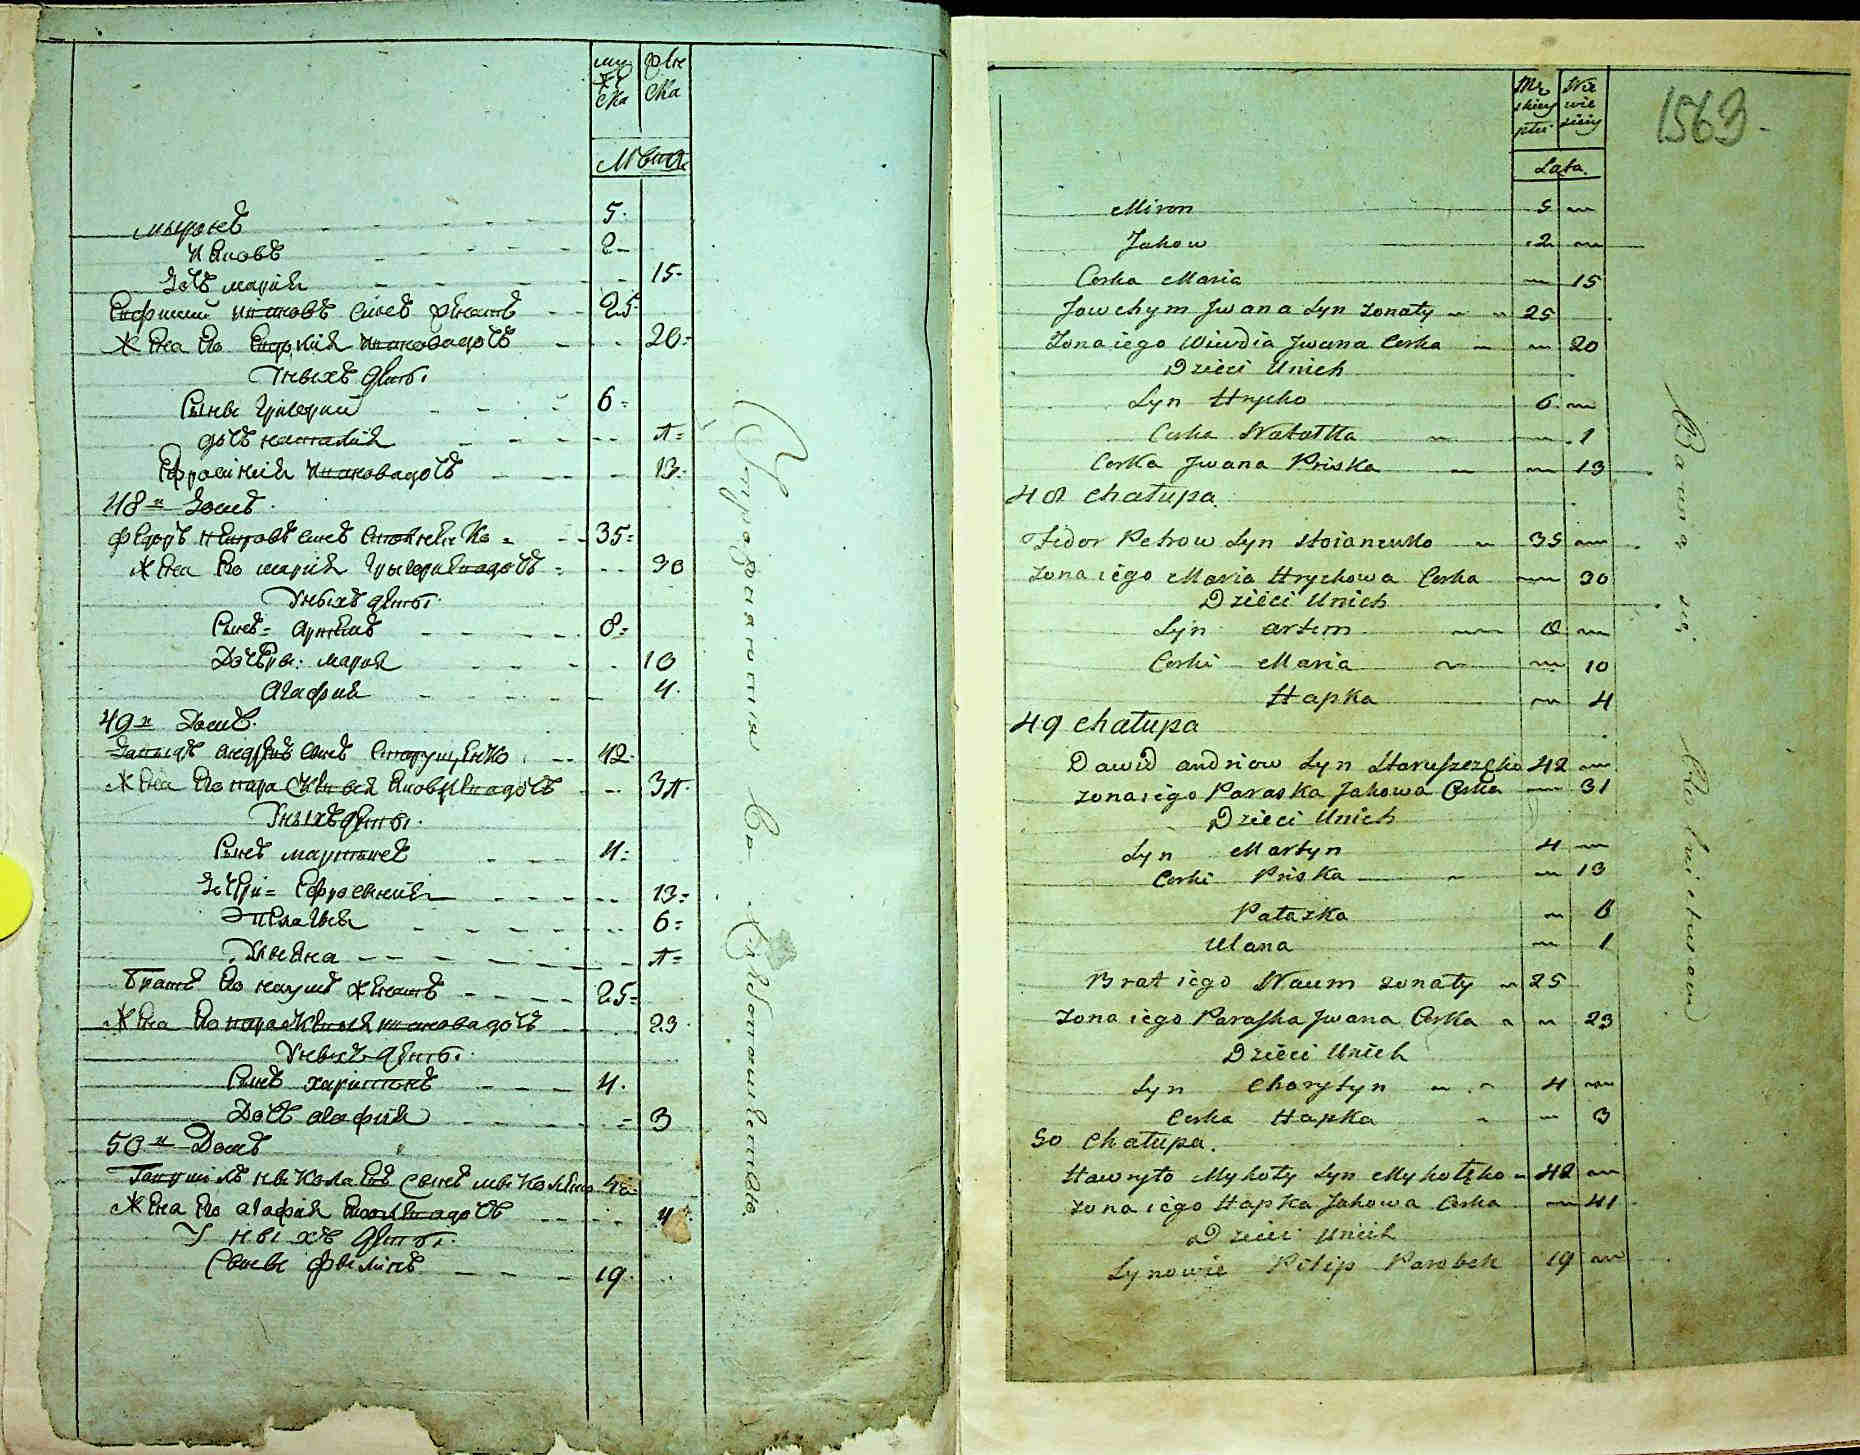 муж
ска
жен
ска
лѣта
Мыронъ 5.
Яковъ 2
Дочь Мария 15
Евфимий Ивановъ сынъ женатъ 25
Жена его Ивановадочь 20
Уныхъ дети
Сынъ Григорий 6
дочь Наталия 1
Ефросиния Ивановадочь 13
48й Домъ
Федоръ Петровъ сынъ Стояненко 35
Жена его Мария Григориевадочь 30
Уныхъ дети
Сынъ Артемъ 8
Дочери Мария 10
Агафия 4
49й Домъ
Давыдъ Андреевъ сынъ Старушенко 42
Жена его Параскевия Яковлевадочь 31
Уныхъ дети
Сынъ Мартынъ 4
Дочери Ефросиния 13
Пелагия 6
Ульяна 1
Братъ его Наумъ женатъ 25
Жена его Параскевия Ивановадочь 23
Уныхъ дети
Сынъ Харитонъ 4
Дочь Агафия 3
50й Домъ
Гавриилъ Николаевъ сынъ Миколенко
Жена его Агафия дочь
Уныхъ дети
Сыны Филипъ 19
Mę
skiey
płci
Nie
wie
ściey
Lata.
1563
Miron 5
Jakow 2
Corka Maria 15
Jowchym Jwana Syn zonaty 25
Zona iego Jwana Corka 20
Dzieci Unich
Syn Hrycko 6
Corka Natalka 1
Corka Jwana Priska 13
48 Chałupa
Fedor Petrow Syn Stoianenko 35
Zona iego Maria Hrychowa Corka 30
Dzieci Unich
Syn Artem 8
Corki Maria 10
Hapka 4
49 Chałupa
Dawid Andriow Syn Staruszezko 42
Zona iego Paraska Jakowa Corka 31
Dzieci Unich
Syn Martyn 4
Corki Priska 13
Patazka 6
Ulana 1
Brat iego Naum zonaty 25
Zona iego Paraska Jwana Corka 23
Dzieci Unich
Syn Charytyn 4
Corka Hapka 3
50 Chałupa.
Hawryło Mykoły Syn Mykołęko 42
Zona iego Hapka Jakowa Corka 41
Dzieci Unich
Synowie Pilip Parobek 19